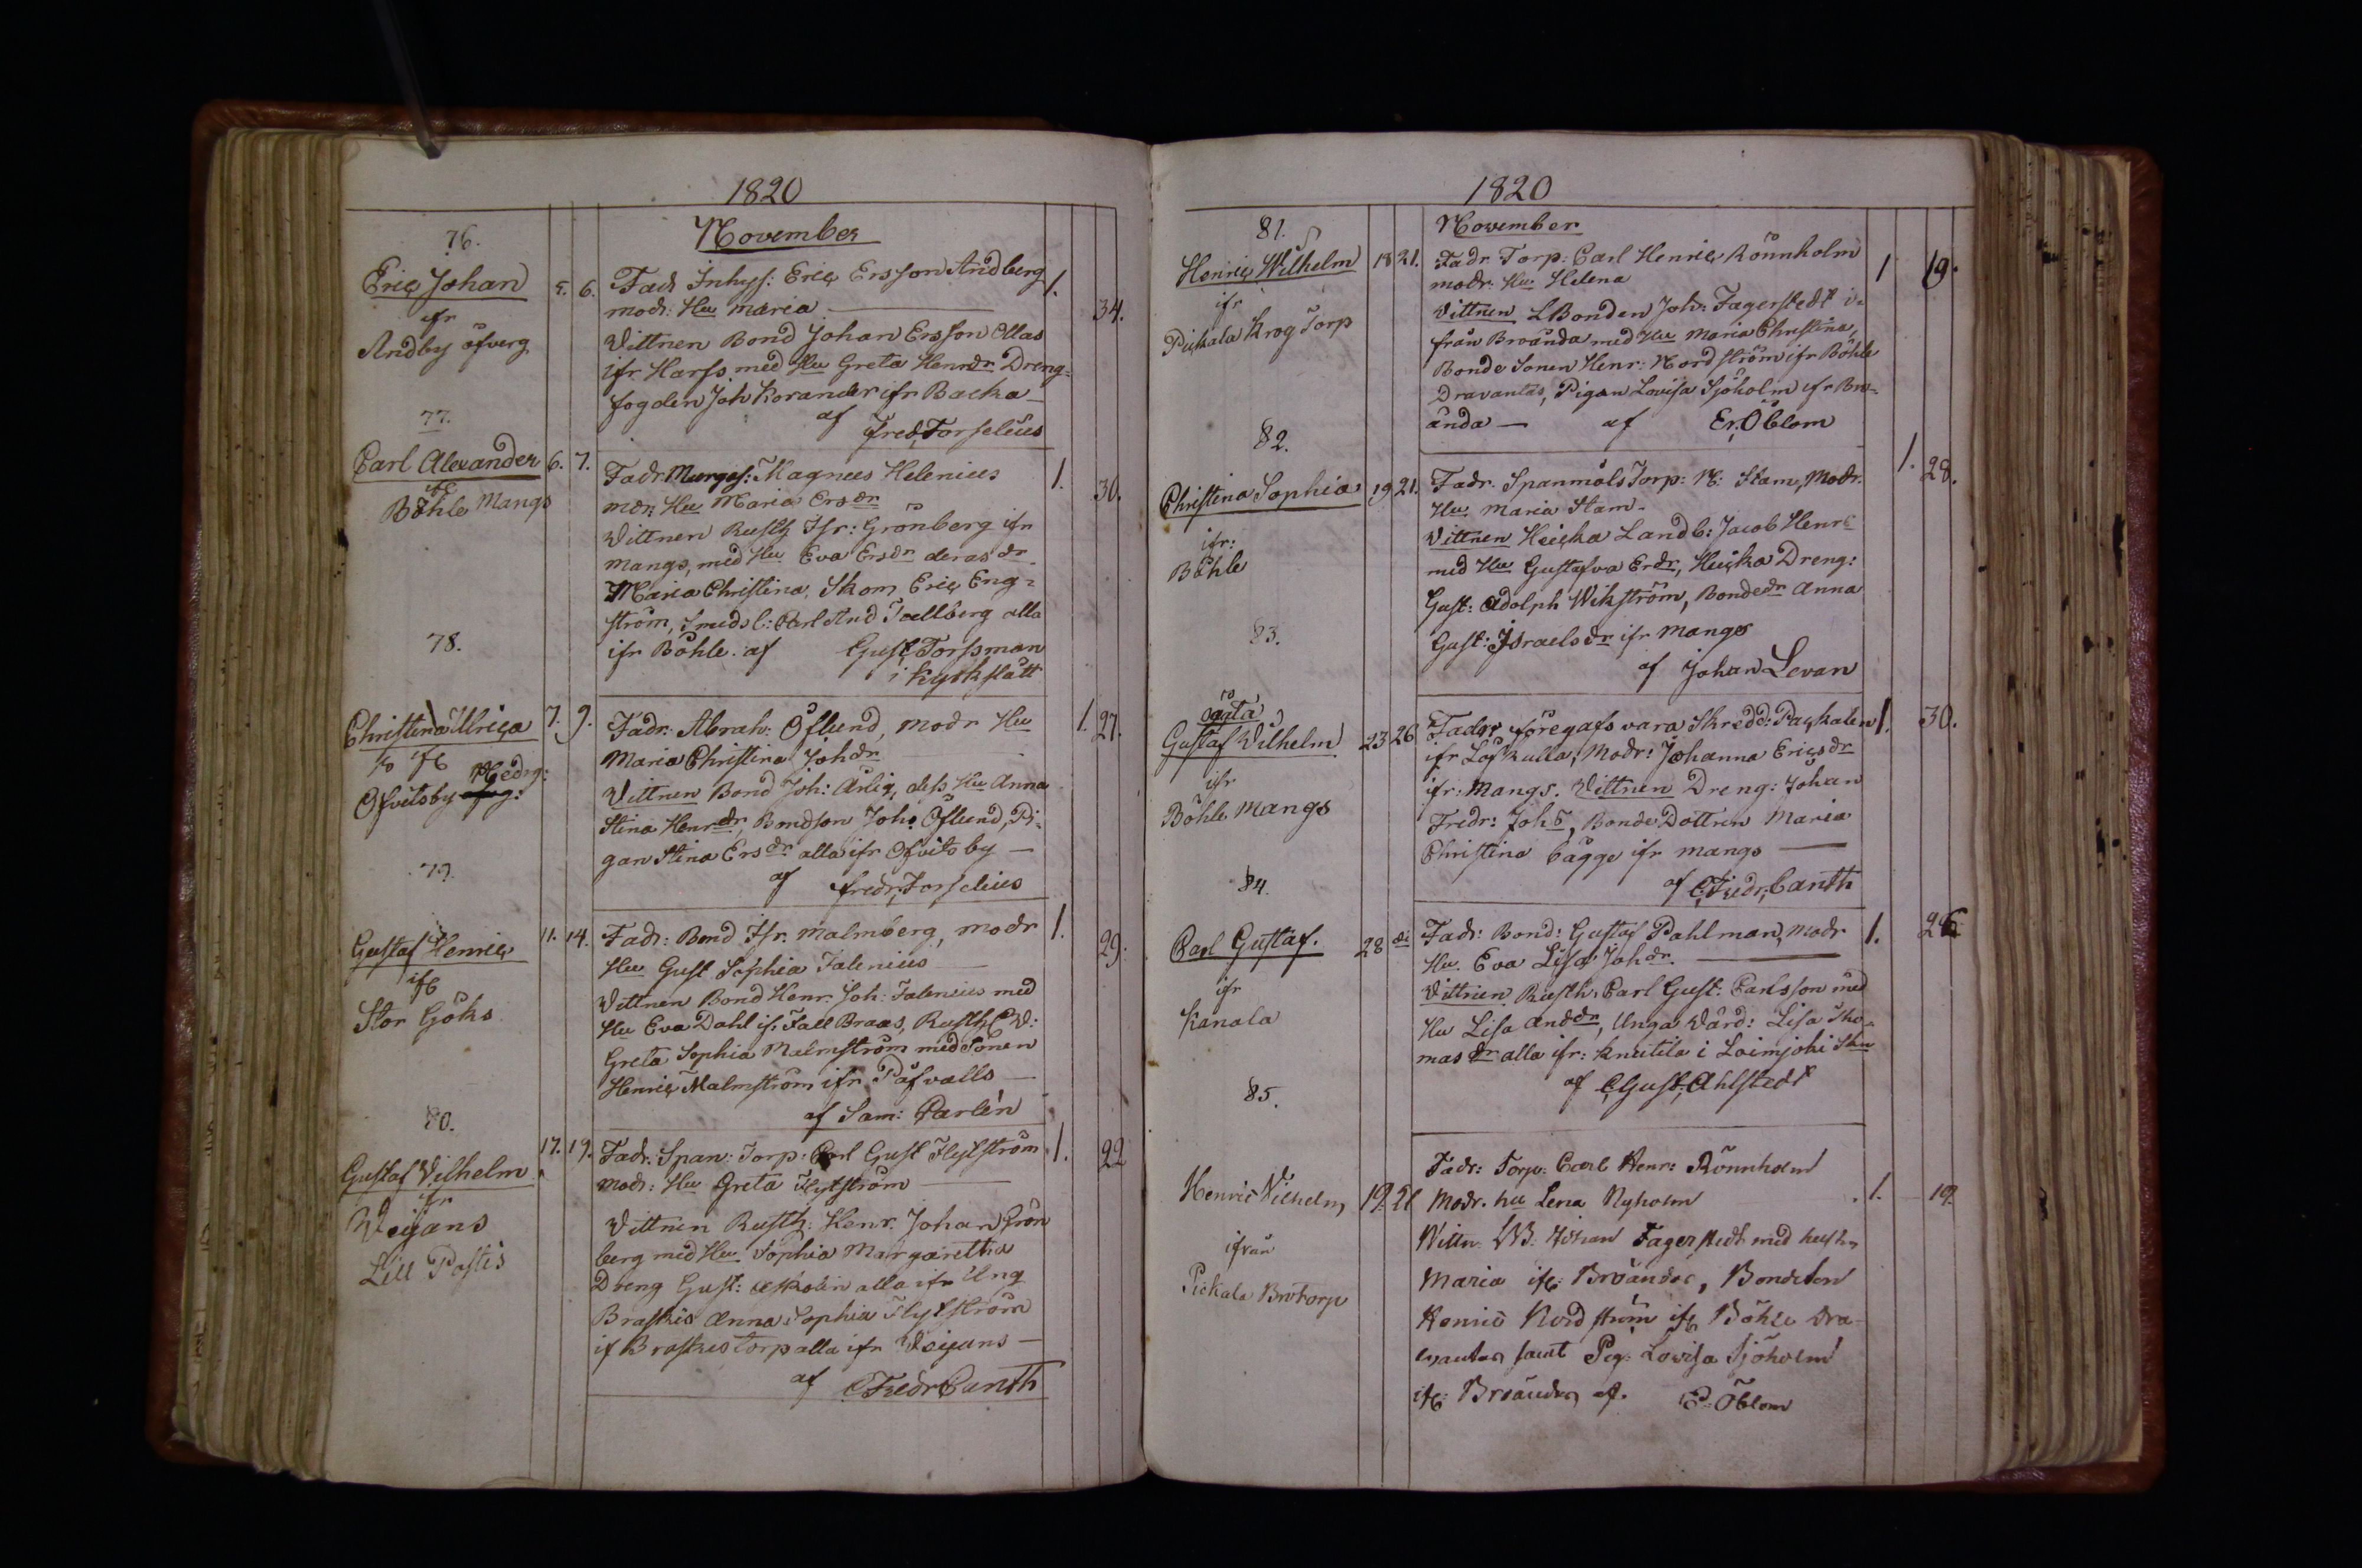 1820
November
76.
Eric Johan 5. 6. Fadr Inhys: Eric Ersson Andberg 1. 34.
ifr modr: Hu Maria
Andby öfverg Vittnen Bond Johan Ersson Ollas
ifr Harfs med Hu Greta Henrdr Dreng-
fogden Joh Korander ifr Backa
af Fred, Forselius
77.
Carl Alexander 6. 7. Fadr. Murges: Magnus Helenius 1. 30.
ifr modr: Hu Maria Ersdr
Böhle Mangs Vittnen Rusth Isr: Grönberg ifr
Mangs, med Hu Eva Ersdr deras dr
Maria Christina, Skom Eric Eng-
ström, Smeds l: Carl And Tallberg alla
ifr Böhle. af Gust Forssman
i Kyrkslätt
78.
Christina Ulrica 7. 9. Fadr. Abrah: Öflund, modr Hu 1. 27.
Maria Christina Johdr
Ofvitsby Nedrg: Vittnen Bond Joh: Ärlig, dess Hu Anna
Stina Henrdr, Bondson Joh: Öflund, Pi-
gan Stina Ersdr alla ifr Ofvitsby
af Fredr, Forselius
79.
Gustaf Henric 11. 14. Fadr: Bond Isr. Malmberg, modr 1. 29.
ifr Hu Gust Sophia Falenius
Stor Göks Vittnen Bond Henr. Joh: Falenius med
Hu Eva Dahl if. Fall Braas, Rusth
Greta Sophia Malmström med Sonen
Henric Malmström ifr Påfvalls
af Sam: Carlén
80.
Gustaf Vilhelm 17. 19. Fadr. Span: Torp: Carl Gust Flytström 1. 22
ifr Modr: Hu Greta Flytström
Veijans Vittnen Rusth: Henr. Johan Grön
Lill Postis berg med Hu Sophia Margaretha
Dreng Gust: alla ifr Ung
Braskis Anna Sophia Flytström
if Braskes torp alla ifr Veijans
af C Fredr Canth
1820
November
81.
Henric Wilhelm 18 21. Fadr. Torp: Carl Henric Rönnholm 1 19.
ifr modr. Hu Helena
Pickala Krog Torp Vittnen LBonden Joh: Fagerstedt i-
från Broända med Hu Maria Christina,
Bonde Sonen Henr: Nordström ifr Böhle
Dravantas, Pigan Lovisa Sjöholm ifr Bro-
ända af Er, Öblom
82.
Christina Sophia 19 21. Fadr. Spanmåls Torp: N: Stam, Modr. 1. 28.
Hu Maria Stam.
ifr: Vittnen Landb: Jacob Henrs
Böhle med Hu Gustafva Erdr, Dreng:
Gust: Adolph Wikström, Bondedr Anna
Gust: Israelsdr ifr Mangs
af Johan Levan
83.
oägta
Gustaf Wilhelm 23 26 Fadr föregafs vara Skredd: Packalen 1. 30.
ifr ifr Lofkulla, Modr: Johanna Ericsdr
Böhle Mangs ifr: Mangs. Vittnen Dreng: Johan
Fredr: Johs, Bonde Dottren Maria
Christina Bagge ifr Mangs
af C, Fredr, Canth
84.
Carl Gustaf. 28 di Fadr: Bond: Gustaf Dahlman, Modr 1. 26
ifr Hu. Eva Lisa Johdr.
Kanala Vittnen Rusth, Carl Gust: Carlsson med
Hu Lisa Anddr, Unga Värd: Lisa Tho-
mas dr alla ifr: Knutila i Loimjoki Skn
af C, Gust, Ahlstedt
85.
Fadr: Torp: Carl Henr: Rönnholm
Henric Vilhelm 19. 21 Modr. hu Lena Nyholm 1. 19.
Wittn. LB. Johan Fagerstedt med hustru
ifrån Maria ifr: Broända, Bondeson
Pickala Brotorp Henric Nordström ifr Böhle Dra-
vantas samt Pig: Lovisa Sjöholm
ifr: Broända, af. E. Öblom